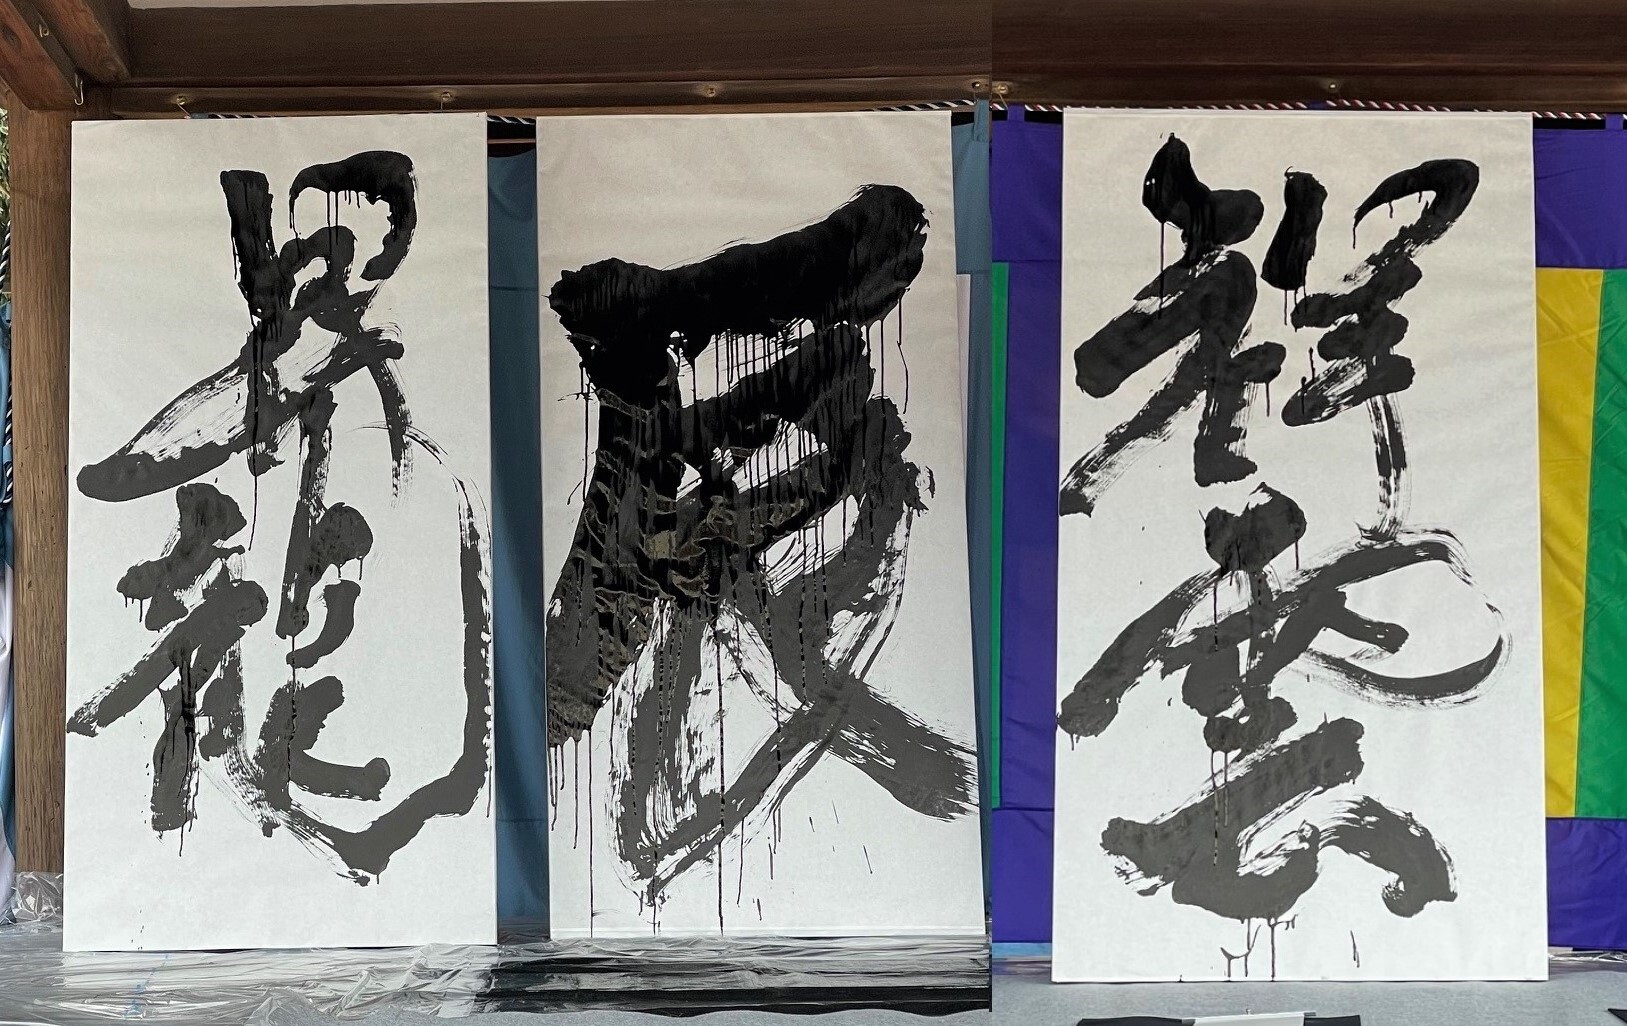 昇龍
辰
祥雲